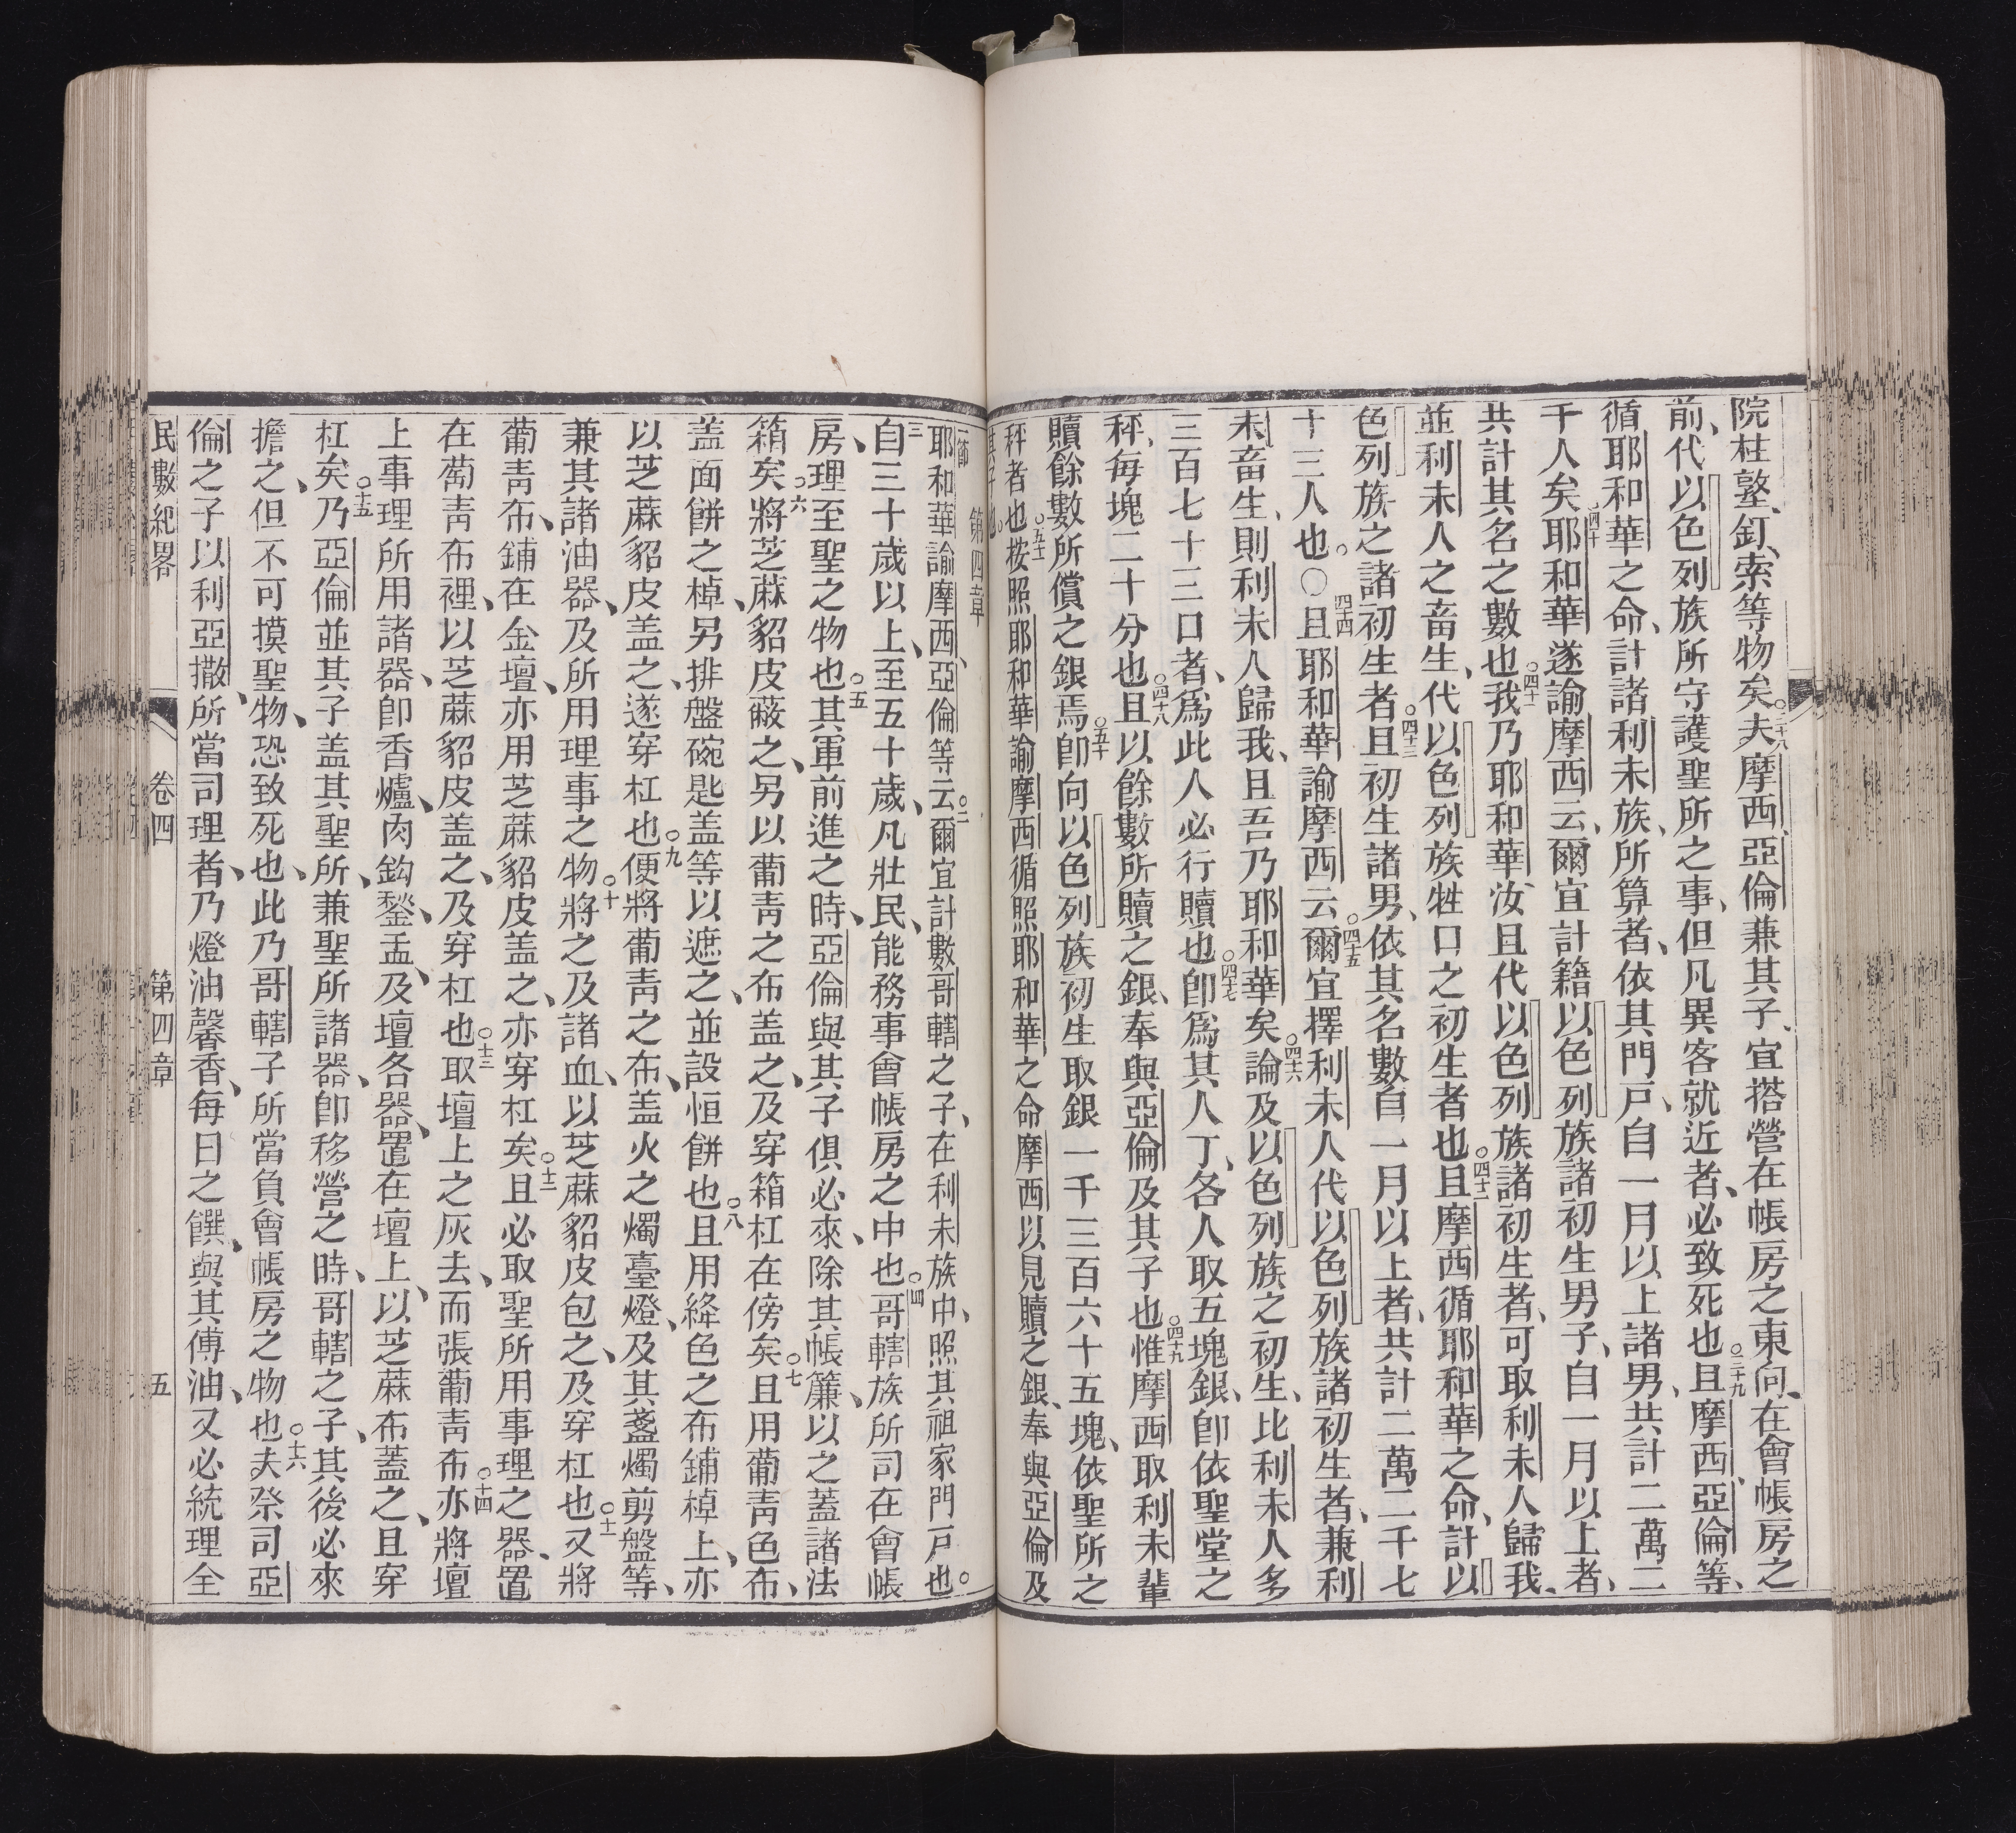 院柱墪、釘、索等物矣○三十八夫摩西、亞倫兼其子、宜搭營在帳房之東向、在會帳房之
前、代以色列族所守護聖所之事、但凡異客就近者、必致死也○三十九且摩西、亞倫等、
循耶和華之命、計諸利未族、所算者、依其門戸、自一月以上諸男、共計二萬二
千人矣○四十耶和華遂諭摩西云、爾宜計籍以色列族諸初生男子、自一月以上者、
共計其名之數也○四十一我乃耶和華、汝且代以色列族諸初生者、可取利未人歸我、
並利未人之畜生、代以色列族牲口之初生者也○四十二且摩西循耶和華之命、計以
色列族之諸初生者○四十三且初生諸男、依其名數自一月以上者、共計二萬二千七
十三人也。○四十四且耶和華諭摩西云。○四十五爾宜擇利未人代以色列族諸初生者、兼利
未畜生、則利未人歸我、且吾乃耶和華矣○四十六論及以色列族之初生、比利未人多
三百七十三口者、爲此人必行贖也○四十七卽爲其人丁、各人取五塊銀、卽依聖堂之
秤、每塊二十分也○四十八且以餘數所贖之銀、奉與亞倫及其子也○四十九惟摩西取利未輩
贖餘數所償之銀焉○五十卽向以色列族初生取銀一千三百六十五塊、依聖所之
秤者也○五十一按照耶和華諭摩西循照耶和華之命摩西以見贖之銀、奉與亞倫及
其子也。
第四章
一節耶和華諭摩西、亞倫等云○二爾宜計數哥轄之子、在利未族中、照其祖家門戸也。
三自三十歲以上、至五十歲、凡壯民、能務事會帳房之中也○四哥轄族所司在會帳
房、理至聖之物也○五其軍前進之時、亞倫與其子俱必來、除其帳簾以之蓋諸法
箱矣○六將芝蔴貂皮蔽之、另以葡靑之布盖之、及穿箱杠在傍矣○七且用葡靑色布、
盖面餅之棹、另排盤碗匙盖等以遮之、並設恒餅也○八且用絳色之布鋪棹上、亦
以芝蔴貂皮盖之、遂穿杠也○九便將葡靑之布、盖火之燭臺燈、及其盞燭剪盤等、
兼其諸油器、及所用理事之物○十將之及諸血、以芝蔴貂皮包之、及穿杠也○十一又將
葡靑布、鋪在金壇、亦用芝蔴貂皮盖之、亦穿杠矣○十二且必取聖所用事理之器、置
在葡靑布裡、以芝蔴貂皮盖之、及穿杠也○十三取壇上之灰去、而張葡靑布○十四亦將壇
上事理所用諸器、卽香爐、肉鈎、鍫、盂、及壇各器、置在壇上、以芝蔴布蓋之、且穿
杠矣○十五乃亞倫並其子盖其聖所、兼聖所諸器、卽移營之時、哥轄之子、其後必來
擔之、但不可摸聖物、恐致死也、此乃哥轄子所當負會帳房之物也○十六夫祭司亞
倫之子以利亞撒、所當司理者、乃燈油馨香、每日之饌、與其傅油、又必統理全
民數紀畧 卷四 第四章 五